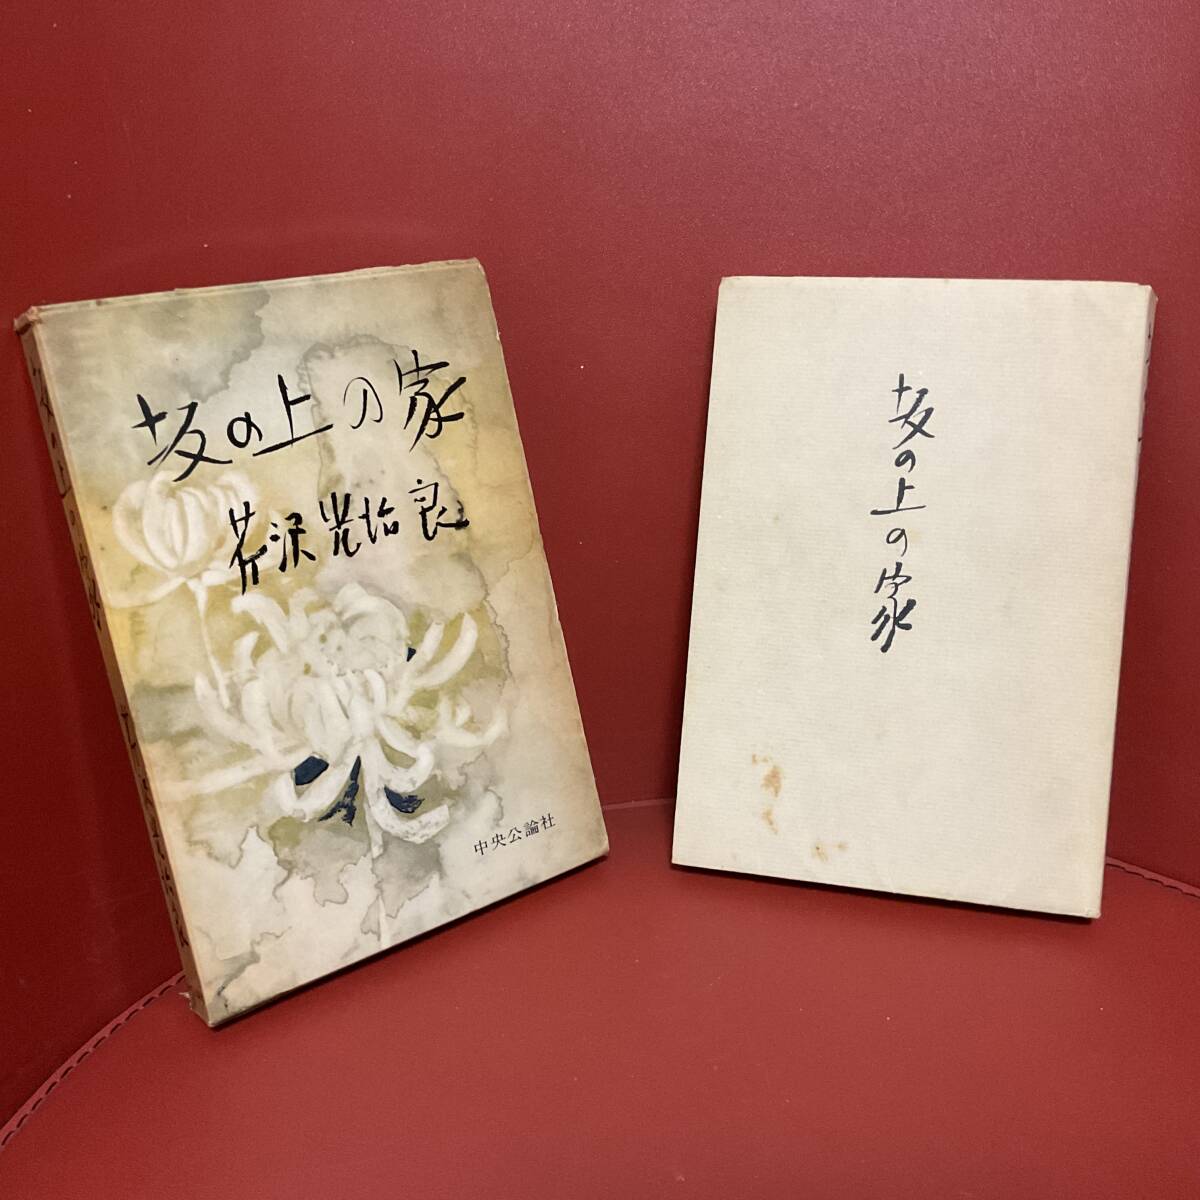 坂の上の家
芹沢光治良
中央公論社
坂の上の家